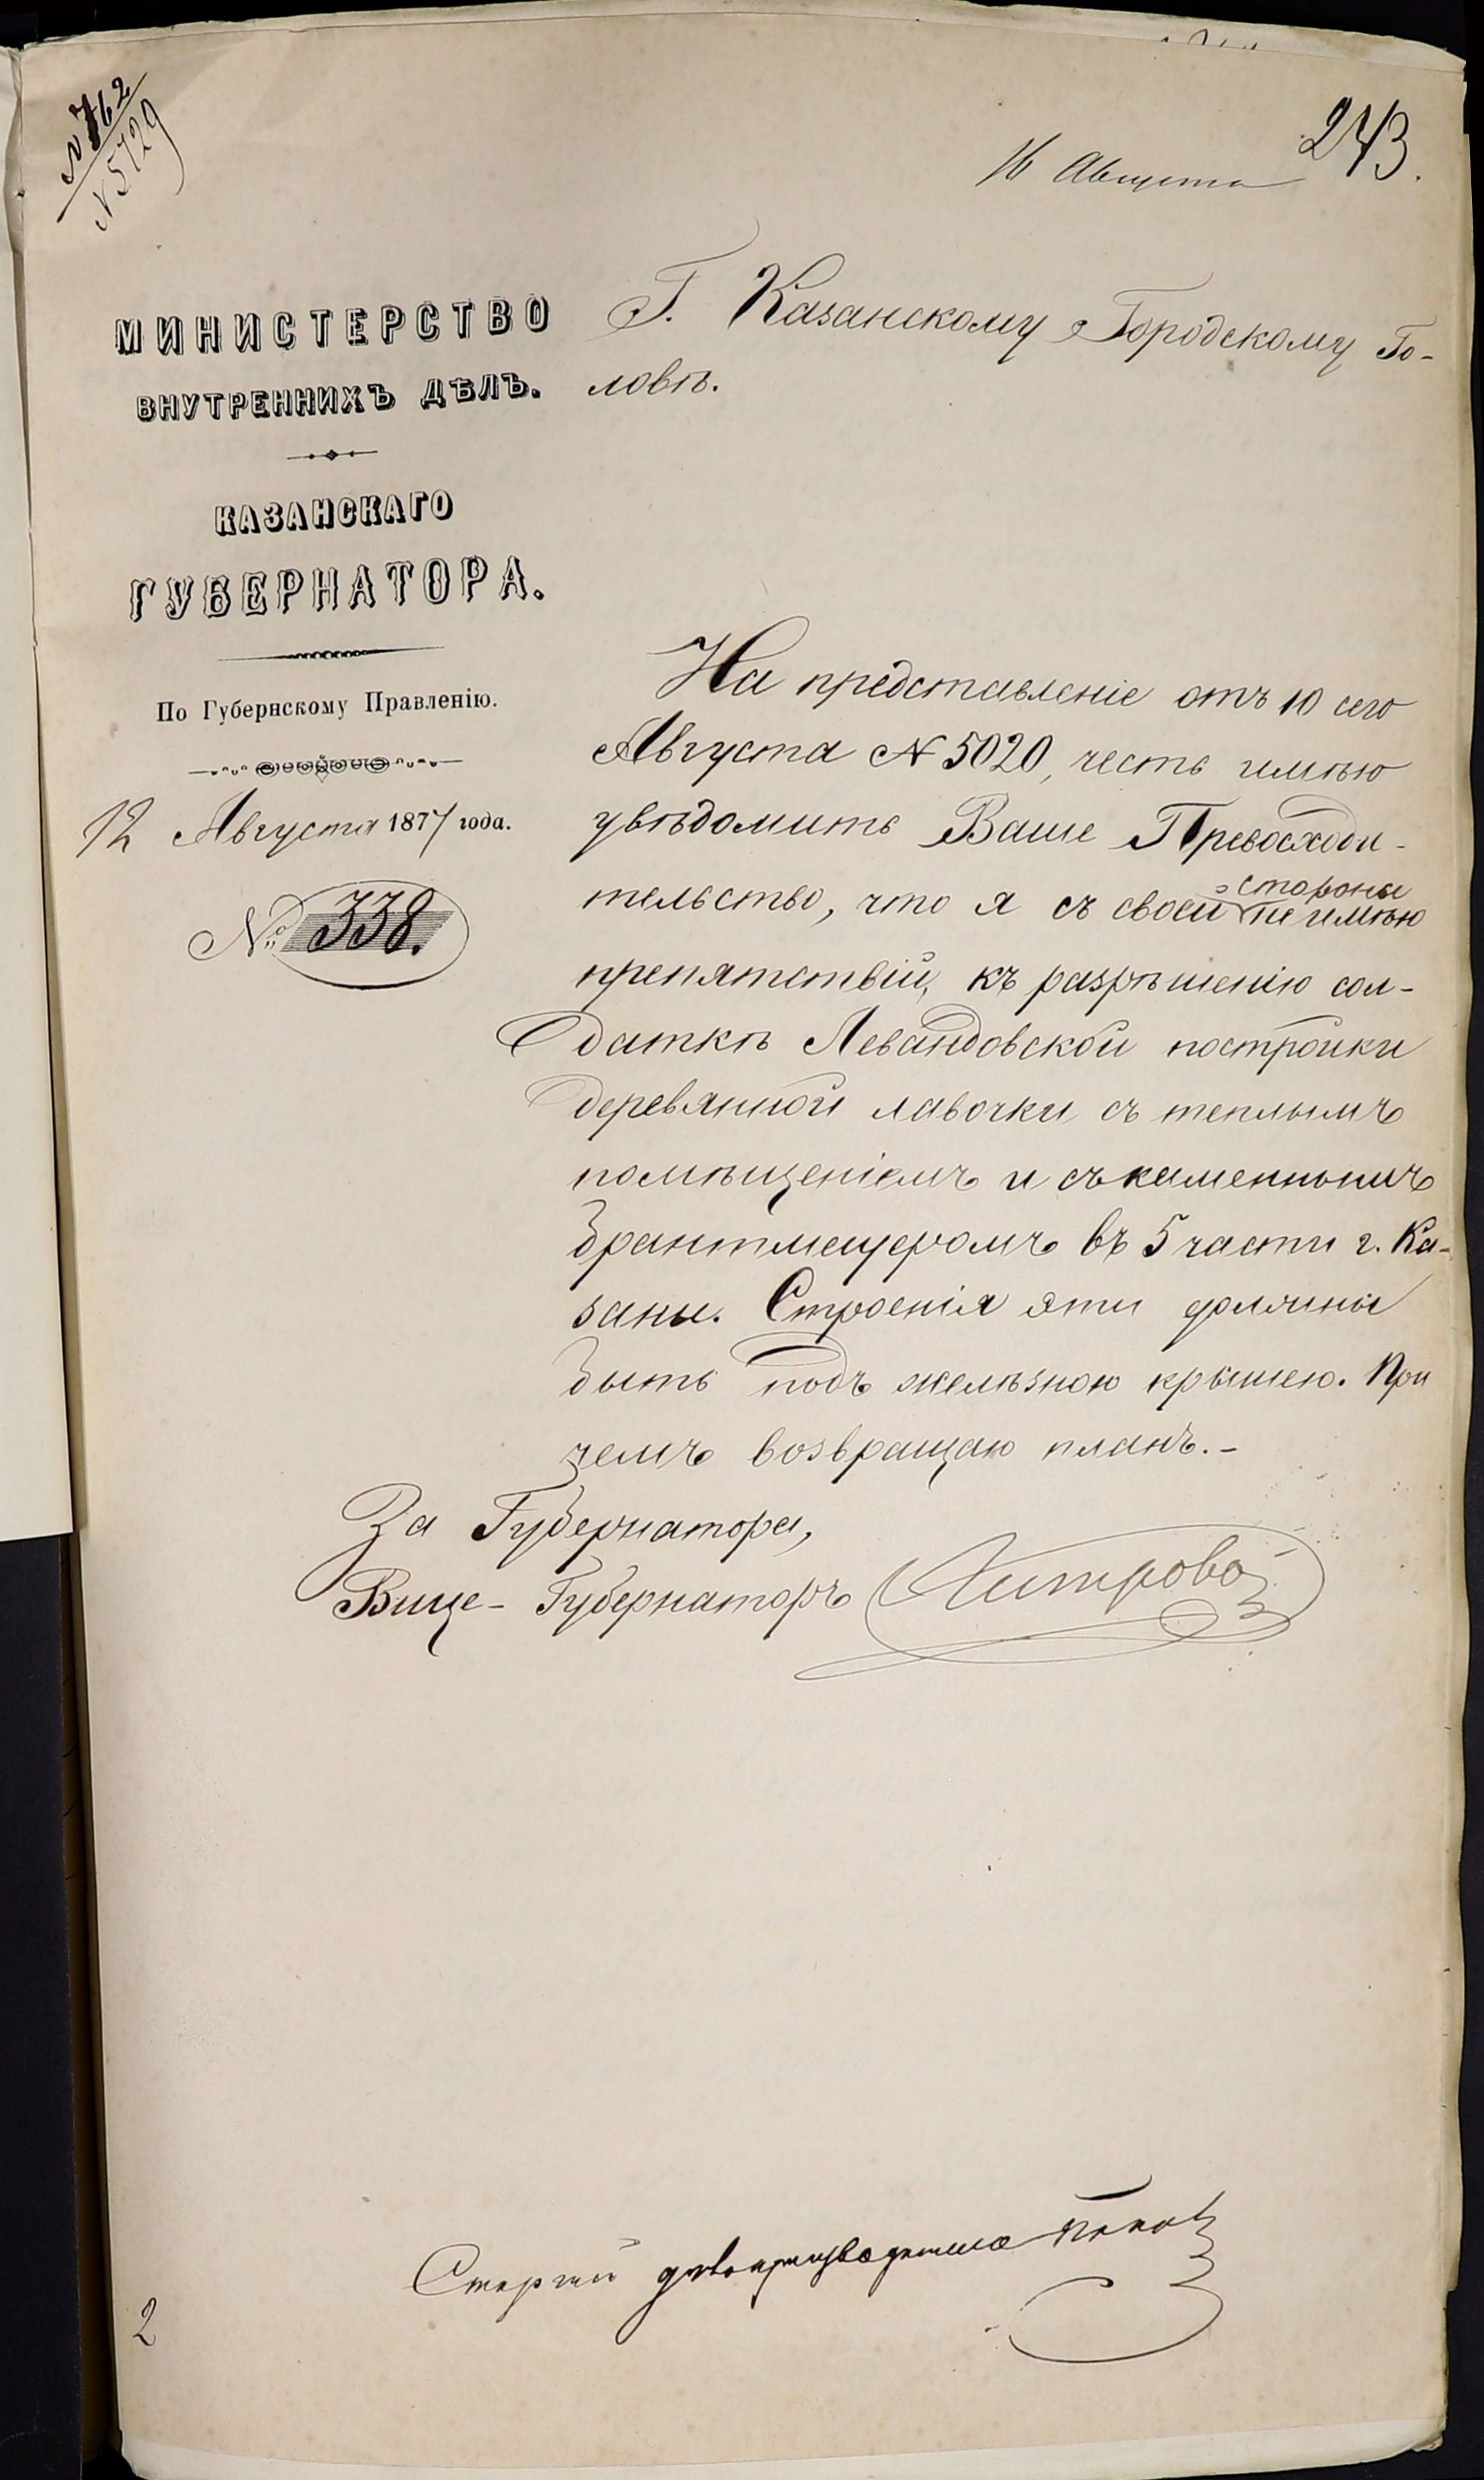 № 762
№ 5729
243.
16 Августа
МИНИСТЕРСТВО
ВНУТРЕННИХЪ ДѢЛЪ.
КАЗАНСКАГО
ГУБЕРНАТОРА.
По Губернскому Правленію.
12 Августа 1877 года.
№ 338.
Г. Казанскому Городскому Го-
ловѣ.
На представленіе отъ 10 сего
Августа № 5020, честь имѣю
увѣдомить Ваше Превосходи-
тельство, что я съ своей стороны не имѣю
препятствій, къ разрѣшенію сол-
даткѣ Левандовской постройки
деревянной лавочки съ теплымъ
помѣщеніемъ и съ каменнымъ
брантмецеромъ въ 5 части г. Ка-
зани. Строенія эти должны
быть подъ желѣзною крышею. При
чемъ возвращаю планъ.-
За Губернатора,
Вице-Губернаторъ
Старшій дѣлопроизводитель Попов
2